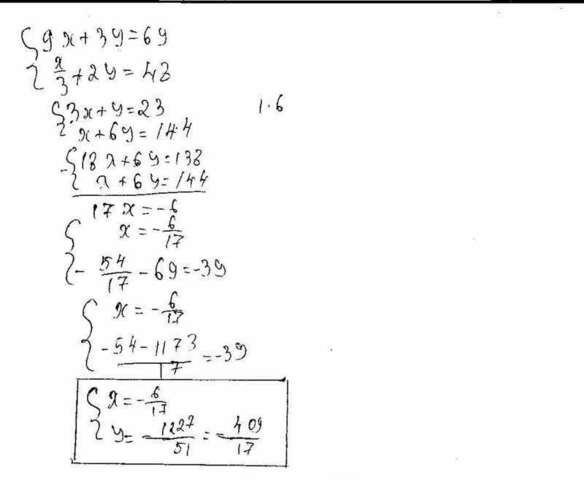 9x+3y=69
x/3+2y=48
3x+y=23 1·6
x+6y=144
18x+6y=138
x+6y=144
17x=-6
x=-6/17
-54/17-69=-3y
x=-6/17
(-54-1173)/17=-3y
x=-6/17
y=1227/51=409/17